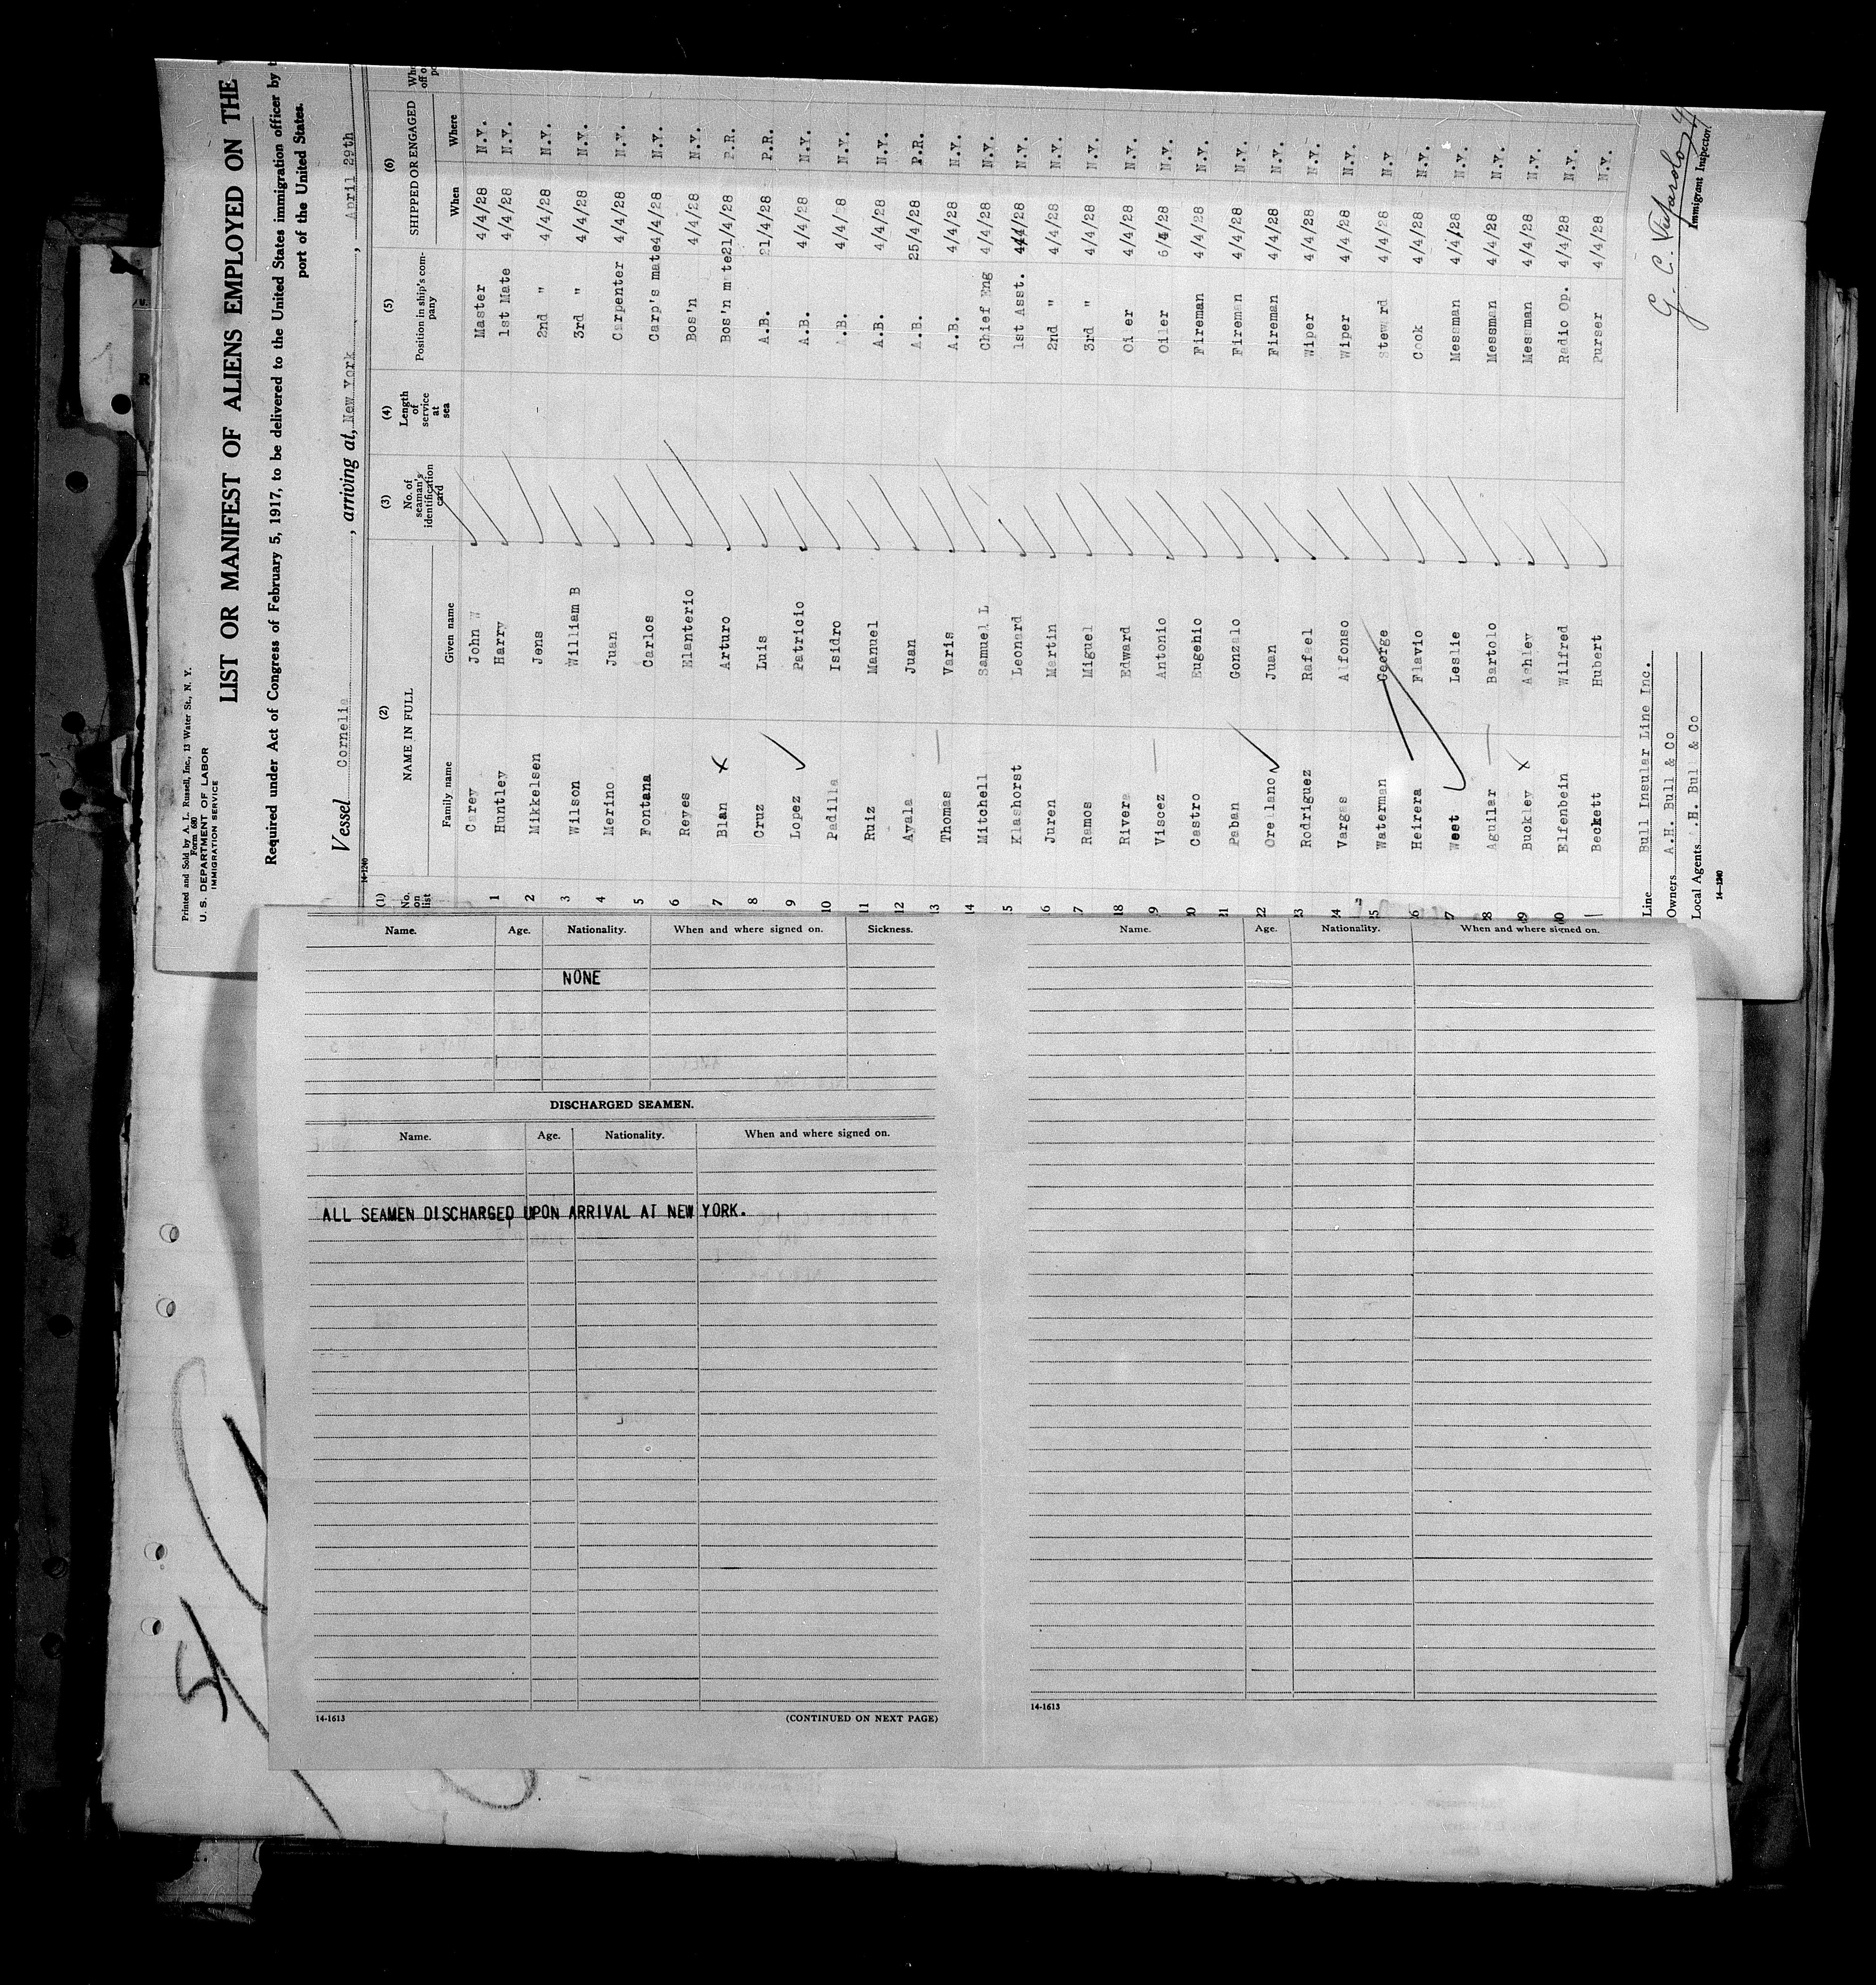 Printed and Sold by A. L. Russell, Inc., 13 Water St., N. Y.
Form 680
U. S. DEPARTMENT OF LABOR
IMMIGRATION SERVICE
LIST OR MANIFEST OF ALIENS EMPLOYED ON THE
Required under Act of Congress of February 5, 1917, to be delivered to the United States immigration officer by
port of the United States.
Vessel Cornelia, arriving at, New York, April 29th
14-1240
(1) (2) (3) (4) (5) (6)
No. on list NAME IN FULL No. of seaman's identification card Length of service at sea Position in ship's company SHIPPED OR ENGAGED
Family name Given name When Where
Carey John W Master 4/4/28 N.Y.
1 Huntley Harry 1st Mate 4/4/28 N.Y.
2 Mikkelsen Jens 2nd " 4/4/28 N.Y.
3 Wilson William B 3rd " 4/4/28 N.Y.
4 Merino Juan Carpenter 4/4/28 N.Y.
5 Fontana Carlos Carp's mate 4/4/28 N.Y.
6 Reyes Elanterio Bos'n 4/4/28 N.Y.
7 Blan x Arturo Bos'n mate 21/4/28 P.R.
8 Cruz Luis A.B. 21/4/28 P.R.
9 Lopez ✓ Patricio A.B. 4/4/28 N.Y.
10 Padilla Isidro A.B. 4/4/28 N.Y.
11 Ruiz Manuel A.B. 4/4/28 N.Y.
12 Ayala Juan A.B. 25/4/28 P.R.
13 Thomas — Varis A.B. 4/4/28 N.Y.
14 Mitchell Samuel L Chief Eng 4/4/28 N.Y.
5 Klashorst Leonard 1st Asst. 4/4/28 N.Y.
6 Juren Martin 2nd " 4/4/28 N.Y.
7 Ramos Miguel 3rd " 4/4/28 N.Y.
18 Rivera Edward Oiler 4/4/28 N.Y.
9 Viscez — Antonio Oiler 6/4/28 N.Y.
20 Castro Eugenio Fireman 4/4/28 N.Y.
21 Paban Gonzalo Fireman 4/4/28 N.Y.
22 Orellano ✓ Juan Fireman 4/4/28 N.Y.
23 Rodriguez Rafael Wiper 4/4/28 N.Y.
24 Vargas Alfonso Wiper 4/4/28 N.Y.
25 Waterman George Steward 4/4/28 N.Y
26 Heirera Flavio Cook 4/4/28 N.Y.
7 West Leslie Messman 4/4/28 N.Y.
28 Aguilar — Bartolo Messman 4/4/28 N.Y.
29 Buckley x Ashley Messman 4/4/28 N.Y.
30 Elfenbein Wilfred Radio Op. 4/4/28 N.Y.
Beckett Hubert Purser 4/4/28 N.Y.
Line Bull Insular Line Inc.
Owners A.H. Bull & Co
Local Agents A.H. Bull & Co
Immigrant Inspector.
14-1240
Name. Age. Nationality. When and where signed on. Sickness.
NONE
DISCHARGED SEAMEN.
Name. Age. Nationality. When and where signed on.
ALL SEAMEN DISCHARGED UPON ARRIVAL AT NEW YORK.
14-1613
(CONTINUED ON NEXT PAGE)
Name. Age. Nationality. When and where signed on.
14-1613